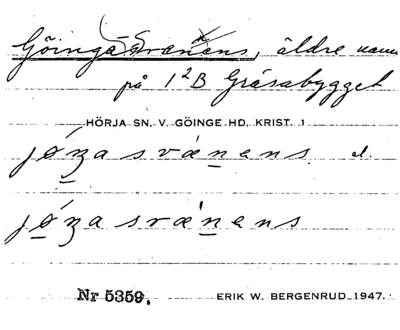 Göingasvanens, äldre namn
på 1²B Gråsabygget
HÖRJA SN, V. GÖINGE HD, KRIST. 1
jǿʒasvánens el.
jǿʒasrænens
Nr 5359. ERIK W. BERGENRUD 1947.